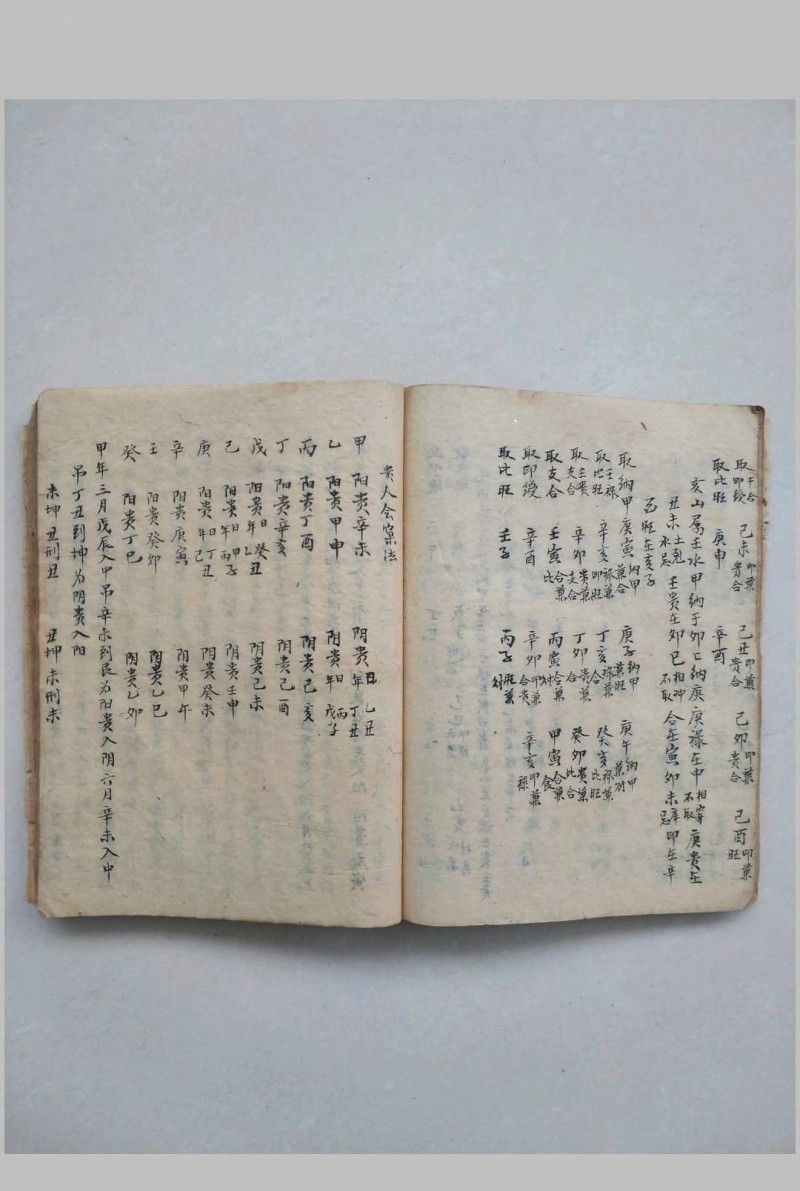 取干合印绶 己未印兼贵合 己丑印兼贵合 己卯印兼贵合 己酉印兼旺
取比旺 庚申 辛酉
亥山属壬水甲纳于卯亡纳庚庚禄在申相穿不取庚贵在
丑未土克水忌壬贵在卯巳相冲不取合在寅卯未库忌印在辛
酉旺在亥子
取纳甲 庚寅纳甲兼合 庚子纳甲兼旺 庚午纳甲兼财
取壬禄比旺 辛亥禄兼印旺 丁亥禄兼合 癸亥禄兼比旺
取壬贵支合 辛卯贵兼支合 丁卯贵兼合 癸卯贵兼比合
取支合 壬寅合兼比 丙寅合兼财 甲寅合兼食
取印绶 辛酉 辛卯印兼合贵 辛亥印兼禄
取比旺 壬子 丙子旺兼财
贵人会案法
甲 阳贵辛未 阴贵日乙丑年丁丑
乙 阳贵甲申 阴贵日丙子年戊子
丙 阳贵丁酉 阴贵己亥
丁 阳贵辛亥 阴贵己酉
戊 阳贵日癸丑年乙丑 阴贵己未
己 阳贵日甲子年丙子 阴贵壬申
庚 阳贵日丁丑年己丑 阴贵癸未
辛 阳贵庚寅 阴贵甲午
壬 阳贵癸卯 阴贵乙巳
癸 阳贵丁巳 阴贵乙卯
甲年三月戊辰入中吊辛未到艮为阳贵入阴六月辛未入中
吊丁丑到坤为阴贵入阳
未坤丑刑丑 丑坤未刑未